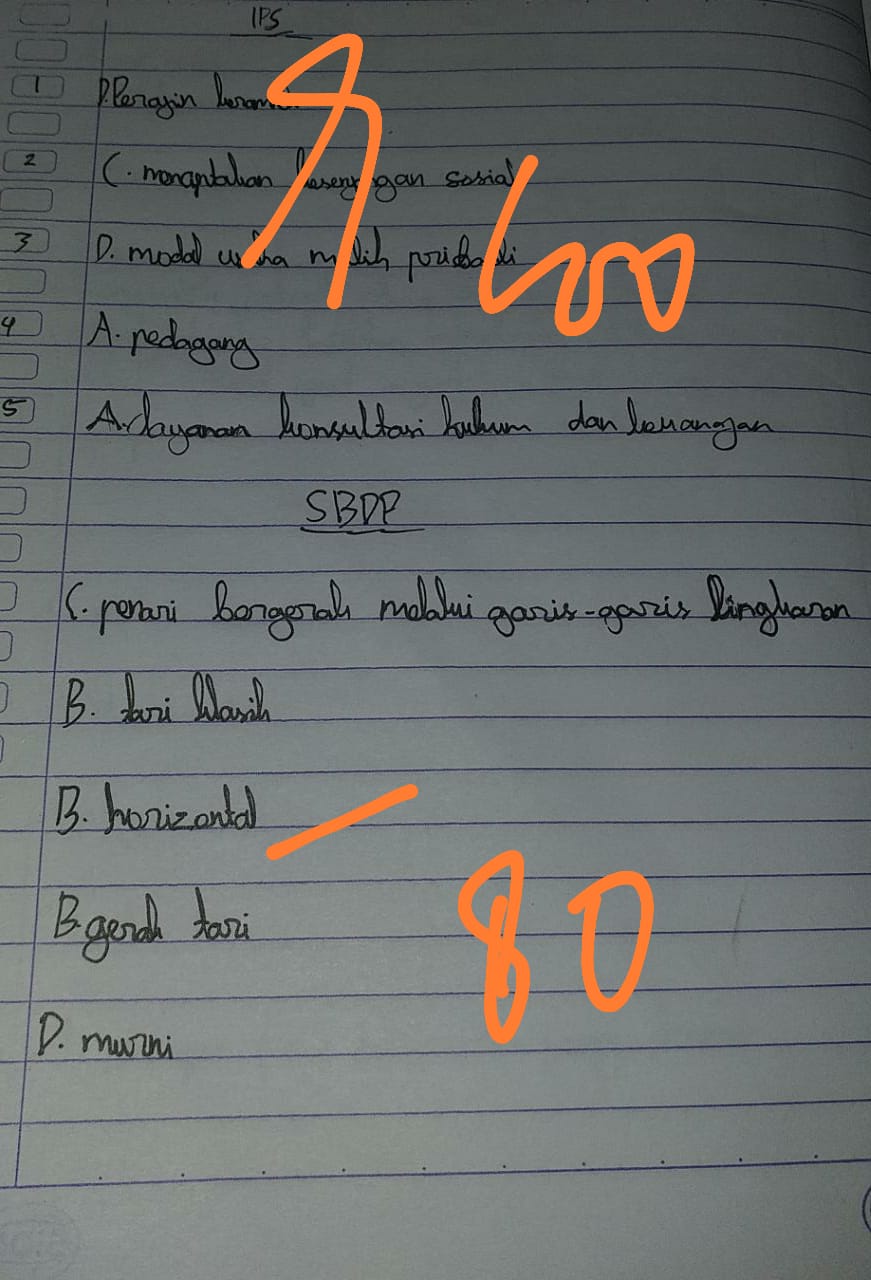 IPS
1 D. Perajin keramik
2 C. menciptakan kesenjangan sosial
3 D. modal usaha milih pribadi
4 A. pedagang
5 A. layanan konsultasi hukum dan keuangan
100
SBDP
C. penari bergerak melalui garis-garis lingkaran
B. tari klasik
B. horizontal
B. gerak tari
80
D. murni